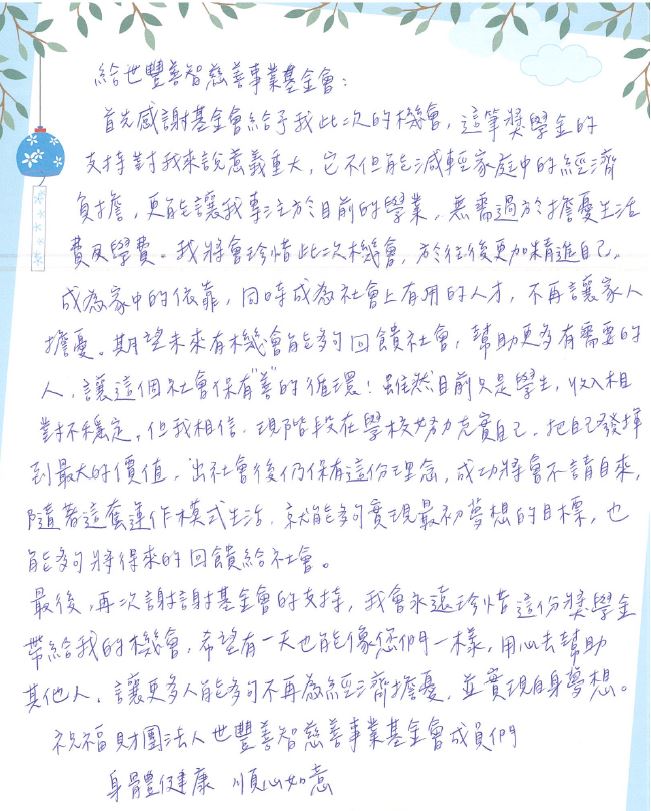 給世豐善智慈善事業基金會：
首先感謝基金會給予我此次的機會，這筆獎學金的
支持對我來說意義重大，它不但能減輕家庭中的經濟
負擔，更能讓我專注於目前的學業，無需過於擔憂生活
費及學費。我將會珍惜此次機會，於往後更加精進自己。
成為家中的依靠，同時成為社會上有用的人才，不再讓家人
擔憂。期望未來有機會能夠回饋社會，幫助更多有需要的
人，讓這個社會保有"善"的循環！雖然目前只是學生，收入相
對不穩定，但我相信，現階段在學校努力充實自己，把自己發揮
到最大的價值，出社會後仍保有這份理念，成功將會不請自來，
隨著這套運作模式生活，就能夠實現最初夢想的目標，也
能夠將得來的回饋給社會。
最後，再次謝謝基金會的支持，我會永遠珍惜這份獎學金
帶給我的機會，希望有一天也能像您們一樣，用心去幫助
其他人，讓更多人能夠不再為經濟擔憂，並實現自身夢想。
祝福財團法人世豐善智慈善事業基金會成員們
身體健康 順心如意